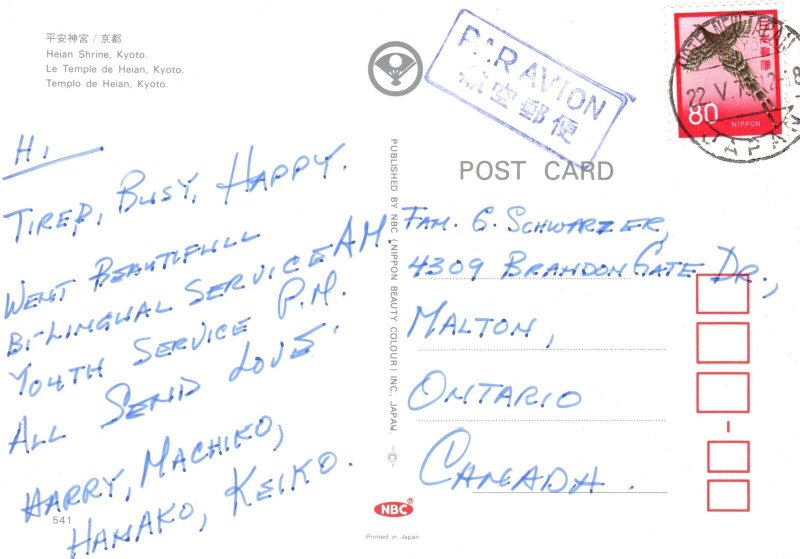 平安神宮/京都
Heian Shrine, Kyoto.
Le Temple de Heian, Kyoto.
Templo de Heian, Kyoto.
HI
TIRED, BUSY, HAPPY.
WENT BEAUTIFULL
BI-LINGUAL SERVICE A.M.
YOUTH SERVICE P.M.
ALL SEND LOVE.
HARRY, MACHIKO,
HANAKO, KEIKO.
541
PUBLISHED BY NBC (NIPPON BEAUTY COLOUR) INC., JAPAN. -©-
NBC®
Printed in Japan
PAR AVION
航空郵便
POST CARD
80
NIPPON
日本郵便
22.V.75.12-
JAPAN
FAM. G. SCHWARZER,
4309 BRANDON GATE DR.,
MALTON,
ONTARIO
CANADA.